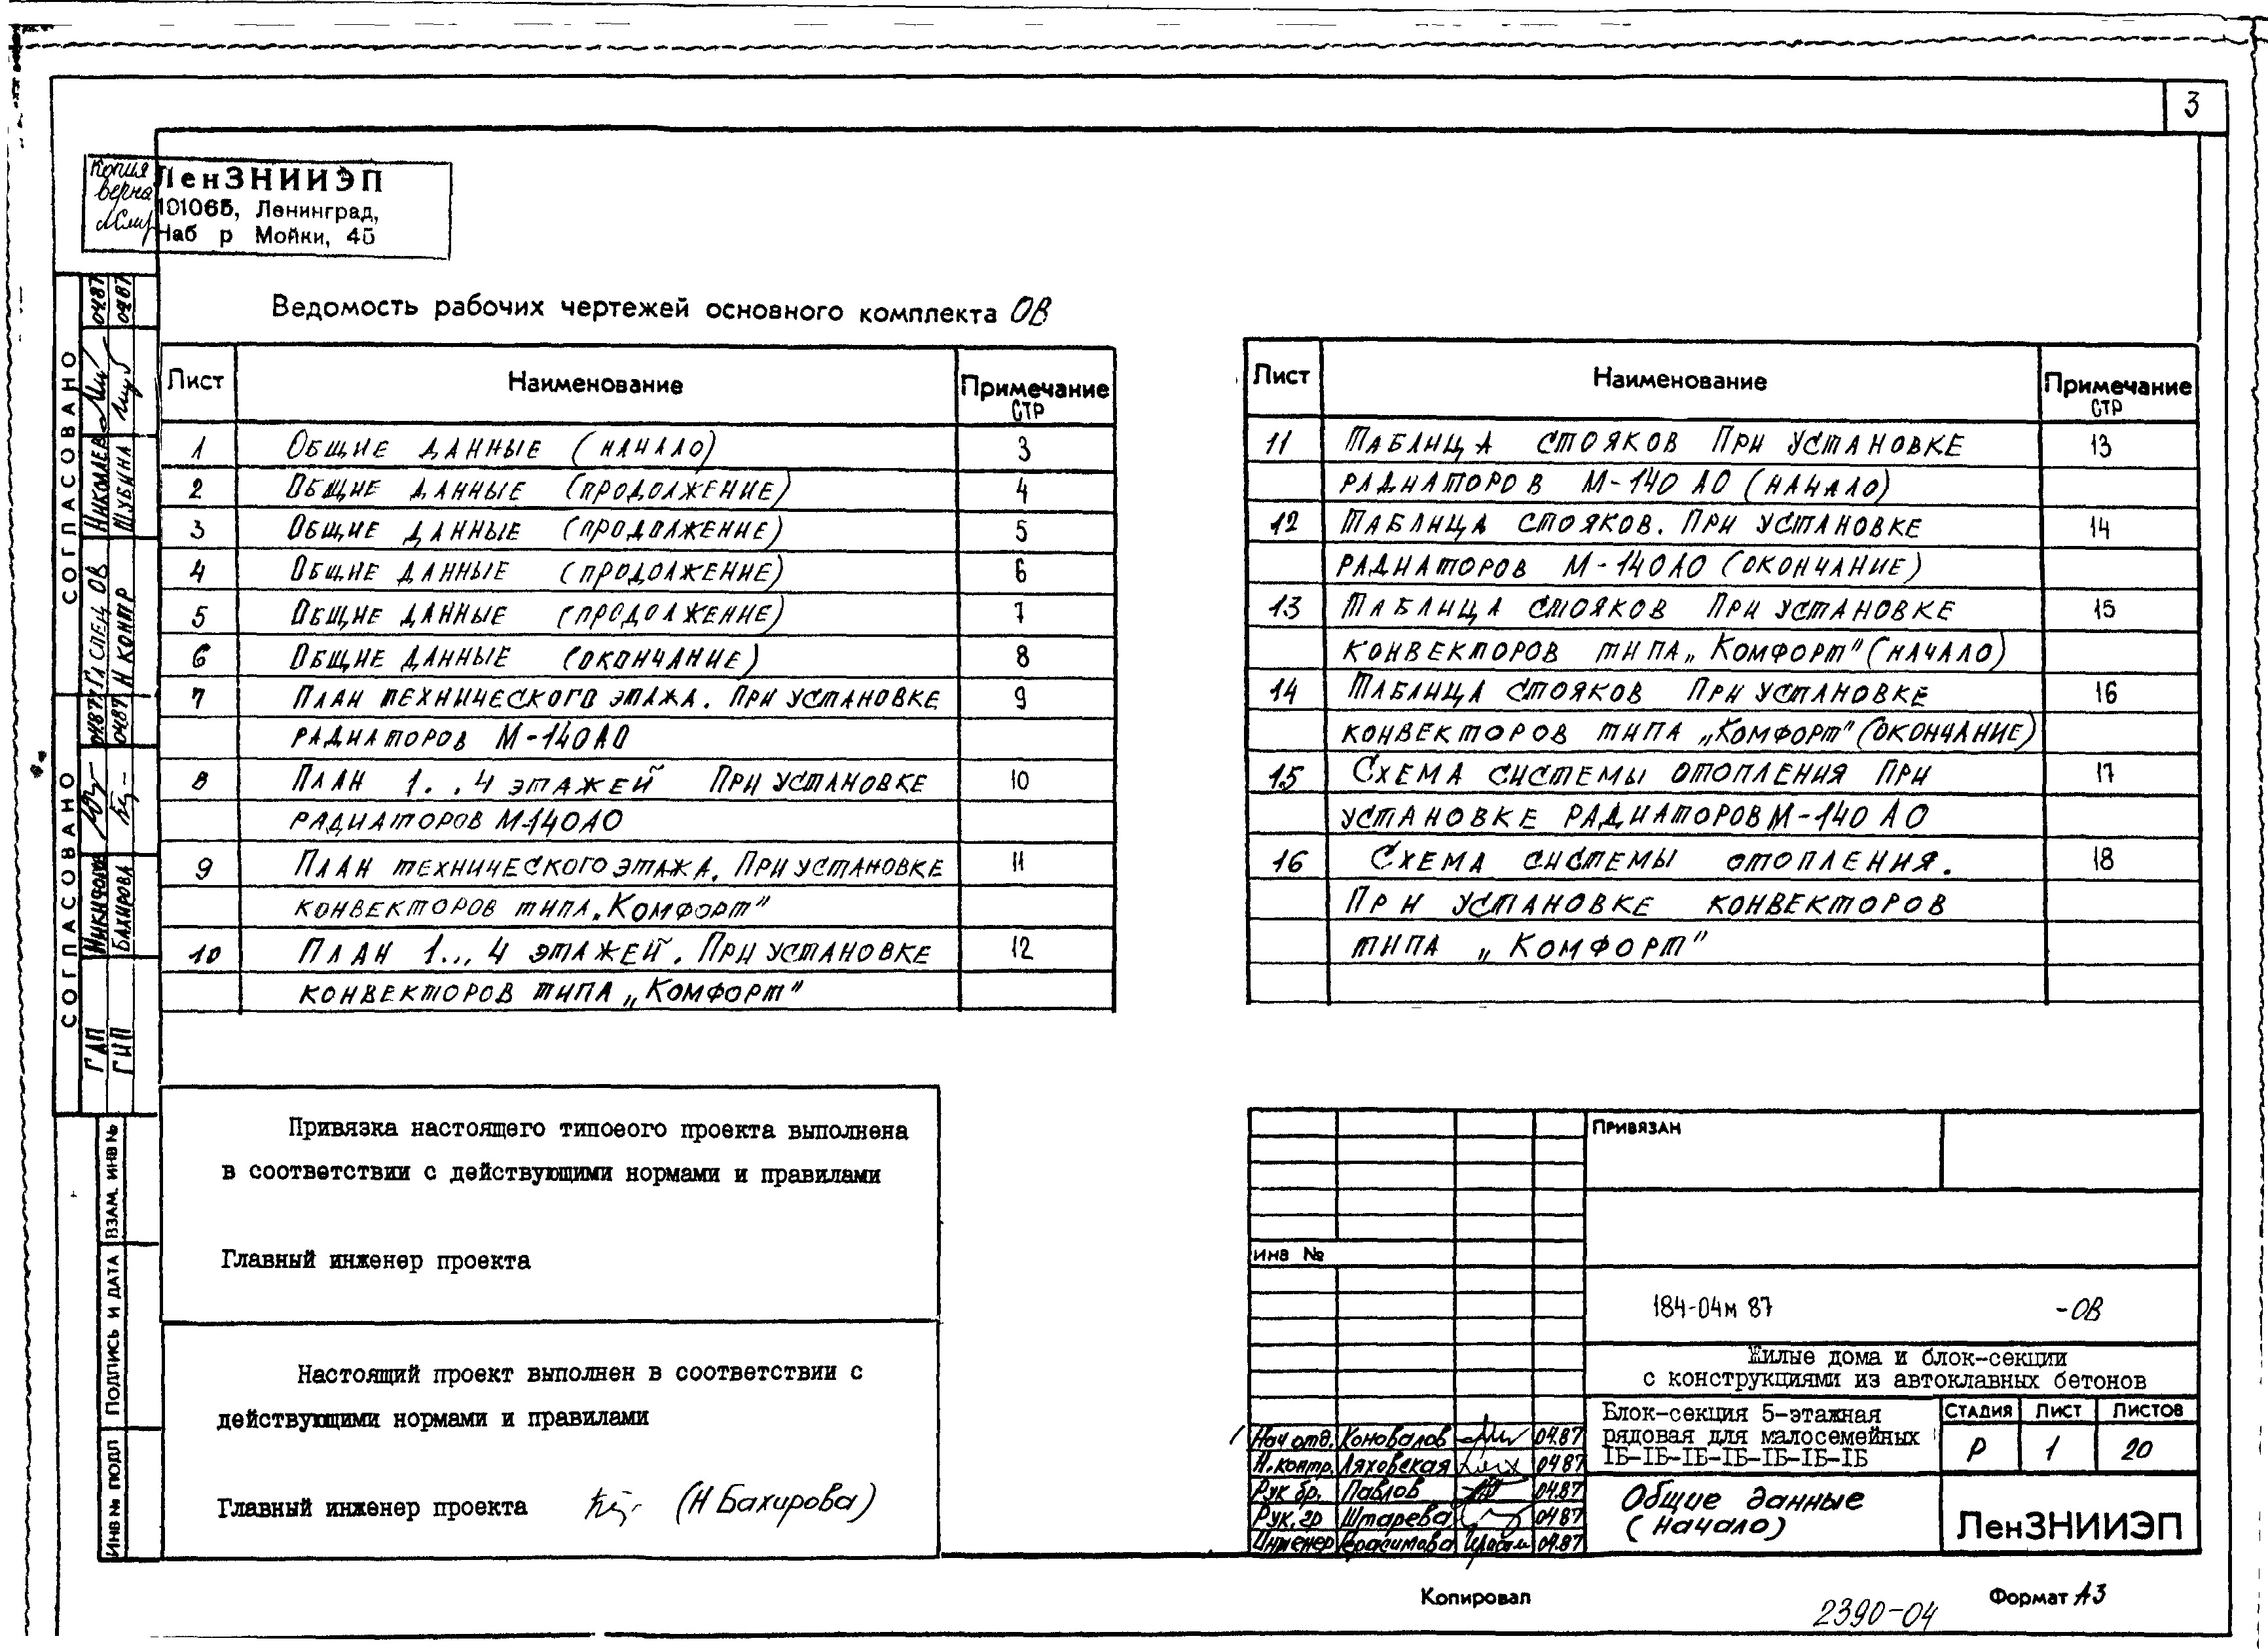 3
Копия
верна
ЛенЗНИИЭП
101065, Ленинград,
Наб р Мойки, 45
Ведомость рабочих чертежей основного комплекта ОВ
Лист Наименование Примечание СТР
1 Общие данные (начало) 3
2 Общие данные (продолжение) 4
3 Общие данные (продолжение) 5
4 Общие данные (продолжение) 6
5 Общие данные (продолжение) 7
6 Общие данные (окончание) 8
7 План технического этажа. При установке 9
радиаторов М-140АО
8 План 1..4 этажей При установке 10
радиаторов М-140АО
9 План технического этажа. При установке 11
конвекторов типа „Комфорт"
10 План 1... 4 этажей. При установке 12
конвекторов типа „Комфорт"
Лист Наименование Примечание СТР
11 Таблица стояков При установке 13
радиаторов М-140 АО (начало)
12 Таблица стояков. При установке 14
радиаторов М-140АО (окончание)
13 Таблица стояков При установке 15
конвекторов типа „Комфорт" (начало)
14 Таблица стояков При установке 16
конвекторов типа „Комфорт" (окончание)
15 Схема системы отопления при 17
установке радиаторов М-140 АО
16 Схема системы отопления. 18
При установке конвекторов
типа „Комфорт"
СОГЛАСОВАНО
Гл спец ОВ Николаев 04.87
Н контр Шубина 04.87
СОГЛАСОВАНО
ГАП 04.87
ГИП Бахирова 04.87
ВЗАМ. ИНВ №
ПОДПИСЬ И ДАТА
ИНВ № ПОДЛ
Привязка настоящего типового проекта выполнена
в соответствии с действующими нормами и правилами
Главный инженер проекта
Настоящий проект выполнен в соответствии с
действующими нормами и правилами
Главный инженер проекта (Н Бахирова)
ПРИВЯЗАН
ИНВ №
184-04м 87 -ОВ
Жилые дома и блок-секции
с конструкциями из автоклавных бетонов
Блок-секция 5-этажная
рядовая для малосемейных
1Б-1Б-1Б-1Б-1Б-1Б-1Б
СТАДИЯ ЛИСТ ЛИСТОВ
Р 1 20
Нач отд. Коновалов 04.87
Н.контр. Ляховская 04.87
Рук бр. Павлов 04.87
Рук. гр Штарева 04.87
Инженер Герасимова 04.87
Общие данные
(начало)
ЛенЗНИИЭП
Копировал
Формат А3
2390-04